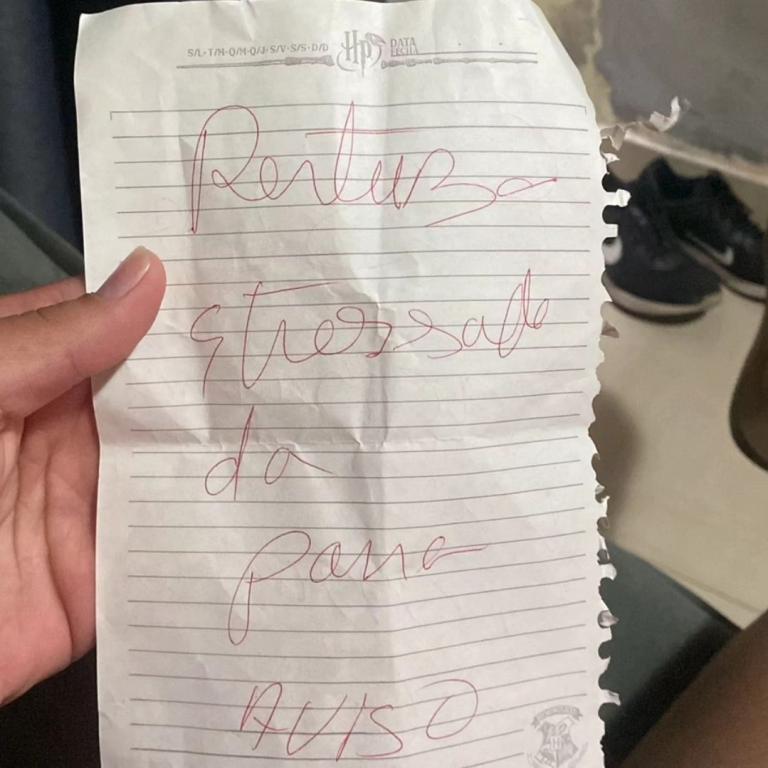 S/L-T/M-Q/M-Q/J-S/V-S/S-D/D HP DATA
FECHA
Rentuza
estressada
da
pana
AVISO